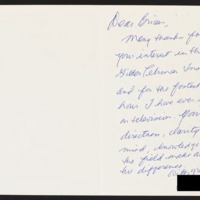 Dear Brian,
Many thanks for
your interest in the
Gilder Lehrman Inst
and for the fastest
hour I have ever
on television. Your
direction, clarity
mind, knowledge
the field make all
the difference.